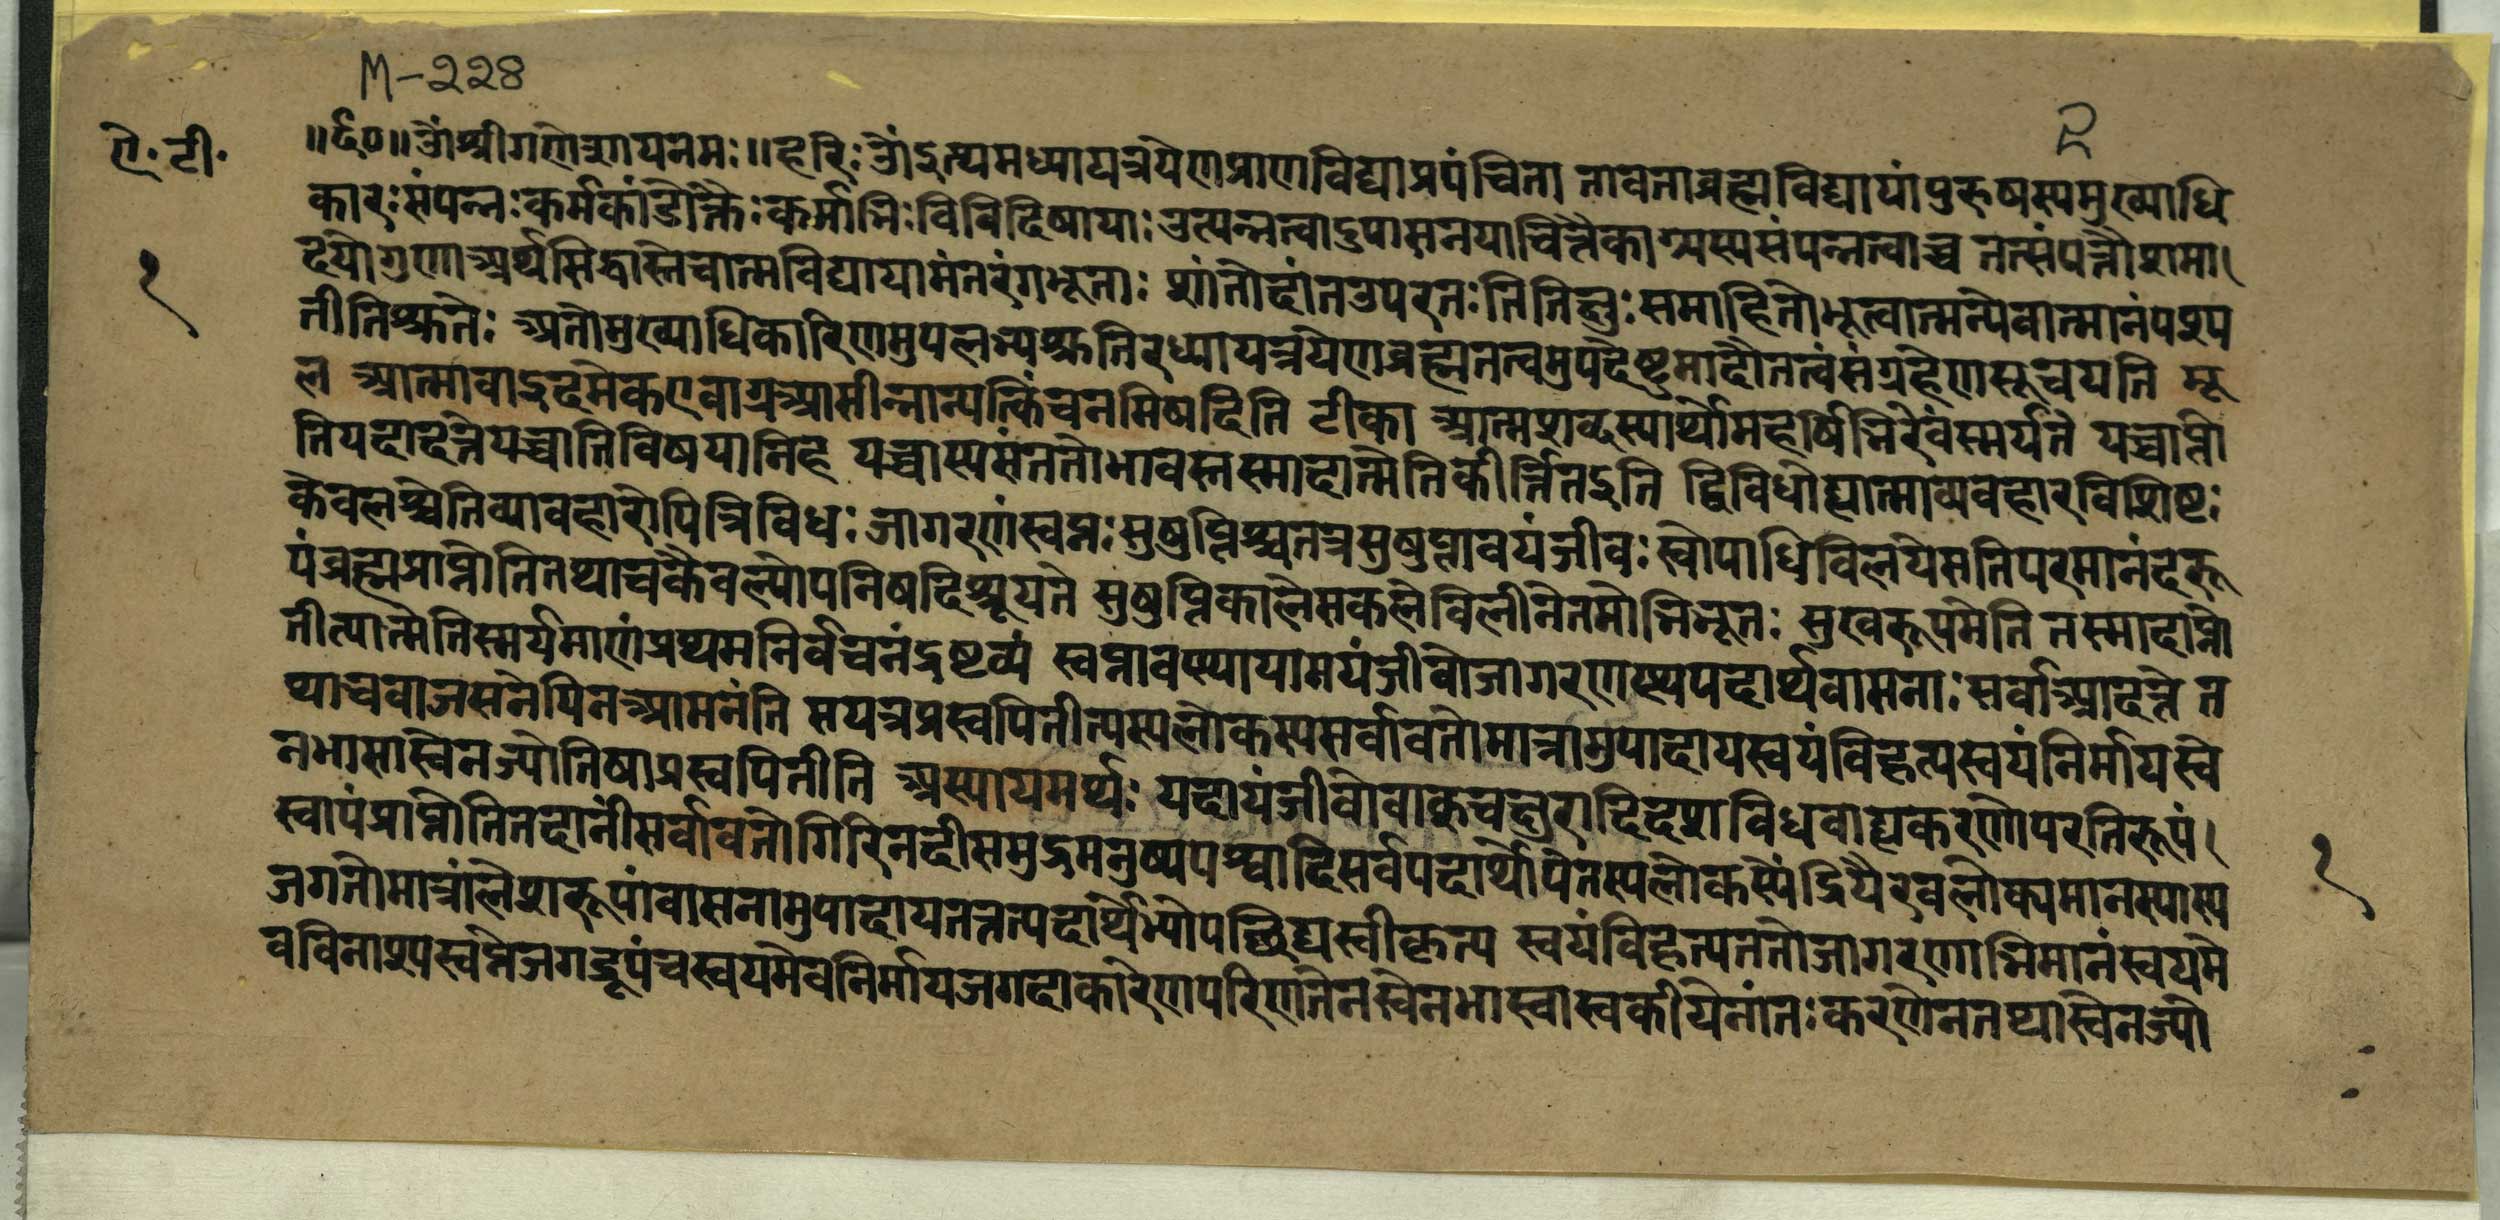 M-२२४
२
ऐ. टी.
॥६०॥ ॐ श्रीगणेशायनमः ॥ हरिः ॐ इत्थमध्यायत्रयेणप्राणविद्याप्रपंचिता तावताब्रह्मविद्यायांपुरुषस्यमुख्याधि
कारःसंपन्नःकर्मकांडोक्तैःकर्मभिःविविदिषायाःउत्पन्नत्वादुपासनयाचित्तैकाग्र्यस्यसंपन्नत्वाच्च तत्संपत्तौशमा
१
दयोगुणाअर्थसिद्धास्तेचात्मविद्यायामंतरंगभूताः शांतोदांतउपरतःतितिक्षुःसमाहितोभूत्वात्मन्येवात्मानंपश्य
तीतिश्रुतेः अतोमुख्याधिकारिणमुपलभ्यश्रुतिरध्यायत्रयेणब्रह्मतत्वमुपदेष्टुमादौतत्वंसंग्रहेणसूचयति मू
ल आत्मावाइदमेकएवाग्रआसीन्नान्यत्किंचनमिषदिति टीका आत्मशब्दस्यार्थोमहर्षिभिरेवंस्मर्यते यच्चाप्नो
तियदादत्तेयच्चात्तिविषयानिह यच्चास्यसंततोभावस्तस्मादात्मेतिकीर्त्तितइति द्विविधोह्यात्माव्यवहारविशिष्टः
केवलश्चेतिव्यावहारोपित्रिविधः जागरणंस्वप्नःसुषुप्तिश्चतत्रसुषुप्तावयंजीवःस्वोपाधिविलयेसतिपरमानंदरू
पंब्रह्मप्राप्नोतितथाचकैवल्योपनिषदिश्रूयते सुषुप्तिकालेसकलेविलीनेतमोभिभूतः सुखरूपमेति तस्मादाप्नो
तीत्यात्मेतिस्मर्यमाणंप्रथमनिर्वचनंद्रष्टव्यं स्वप्नावस्थायामयंजीवोजागरणस्थपदार्थवासनाःसर्वाआदत्ते त
थाचवाजसनेयिनआमनंति सयत्रप्रस्वपितीत्यस्यलोकस्यसर्वावतोमात्रामुपादायस्वयंविहत्यस्वयंनिर्मायस्वे
नभासास्वेनज्योतिषाप्रस्वपितीति अस्यायमर्थः यदायंजीवोवाक्चक्षुरादिदशविधबाह्यकरणोपरतिरूपं
१
स्वापंप्राप्नोतितदानींसर्वावतोगिरिनदीसमुद्रमनुष्यपश्वादिसर्वपदार्थोपेतस्यलोकस्येंद्रियैरवलोक्यमानस्यास्य
जगतोमात्रांलेशरूपांवासनामुपादायतत्तत्पदार्थेभ्योपच्छिद्यस्वीकृत्य स्वयंविहत्यततोजागरणाभिमानंस्वयमे
वविनाश्यस्वप्नेजगद्रूपंचस्वयमेवनिर्मायजगदाकारेणपरिणतेनस्वेनभास्वास्वकीयेनांतःकरणेनतथास्वेनज्यो